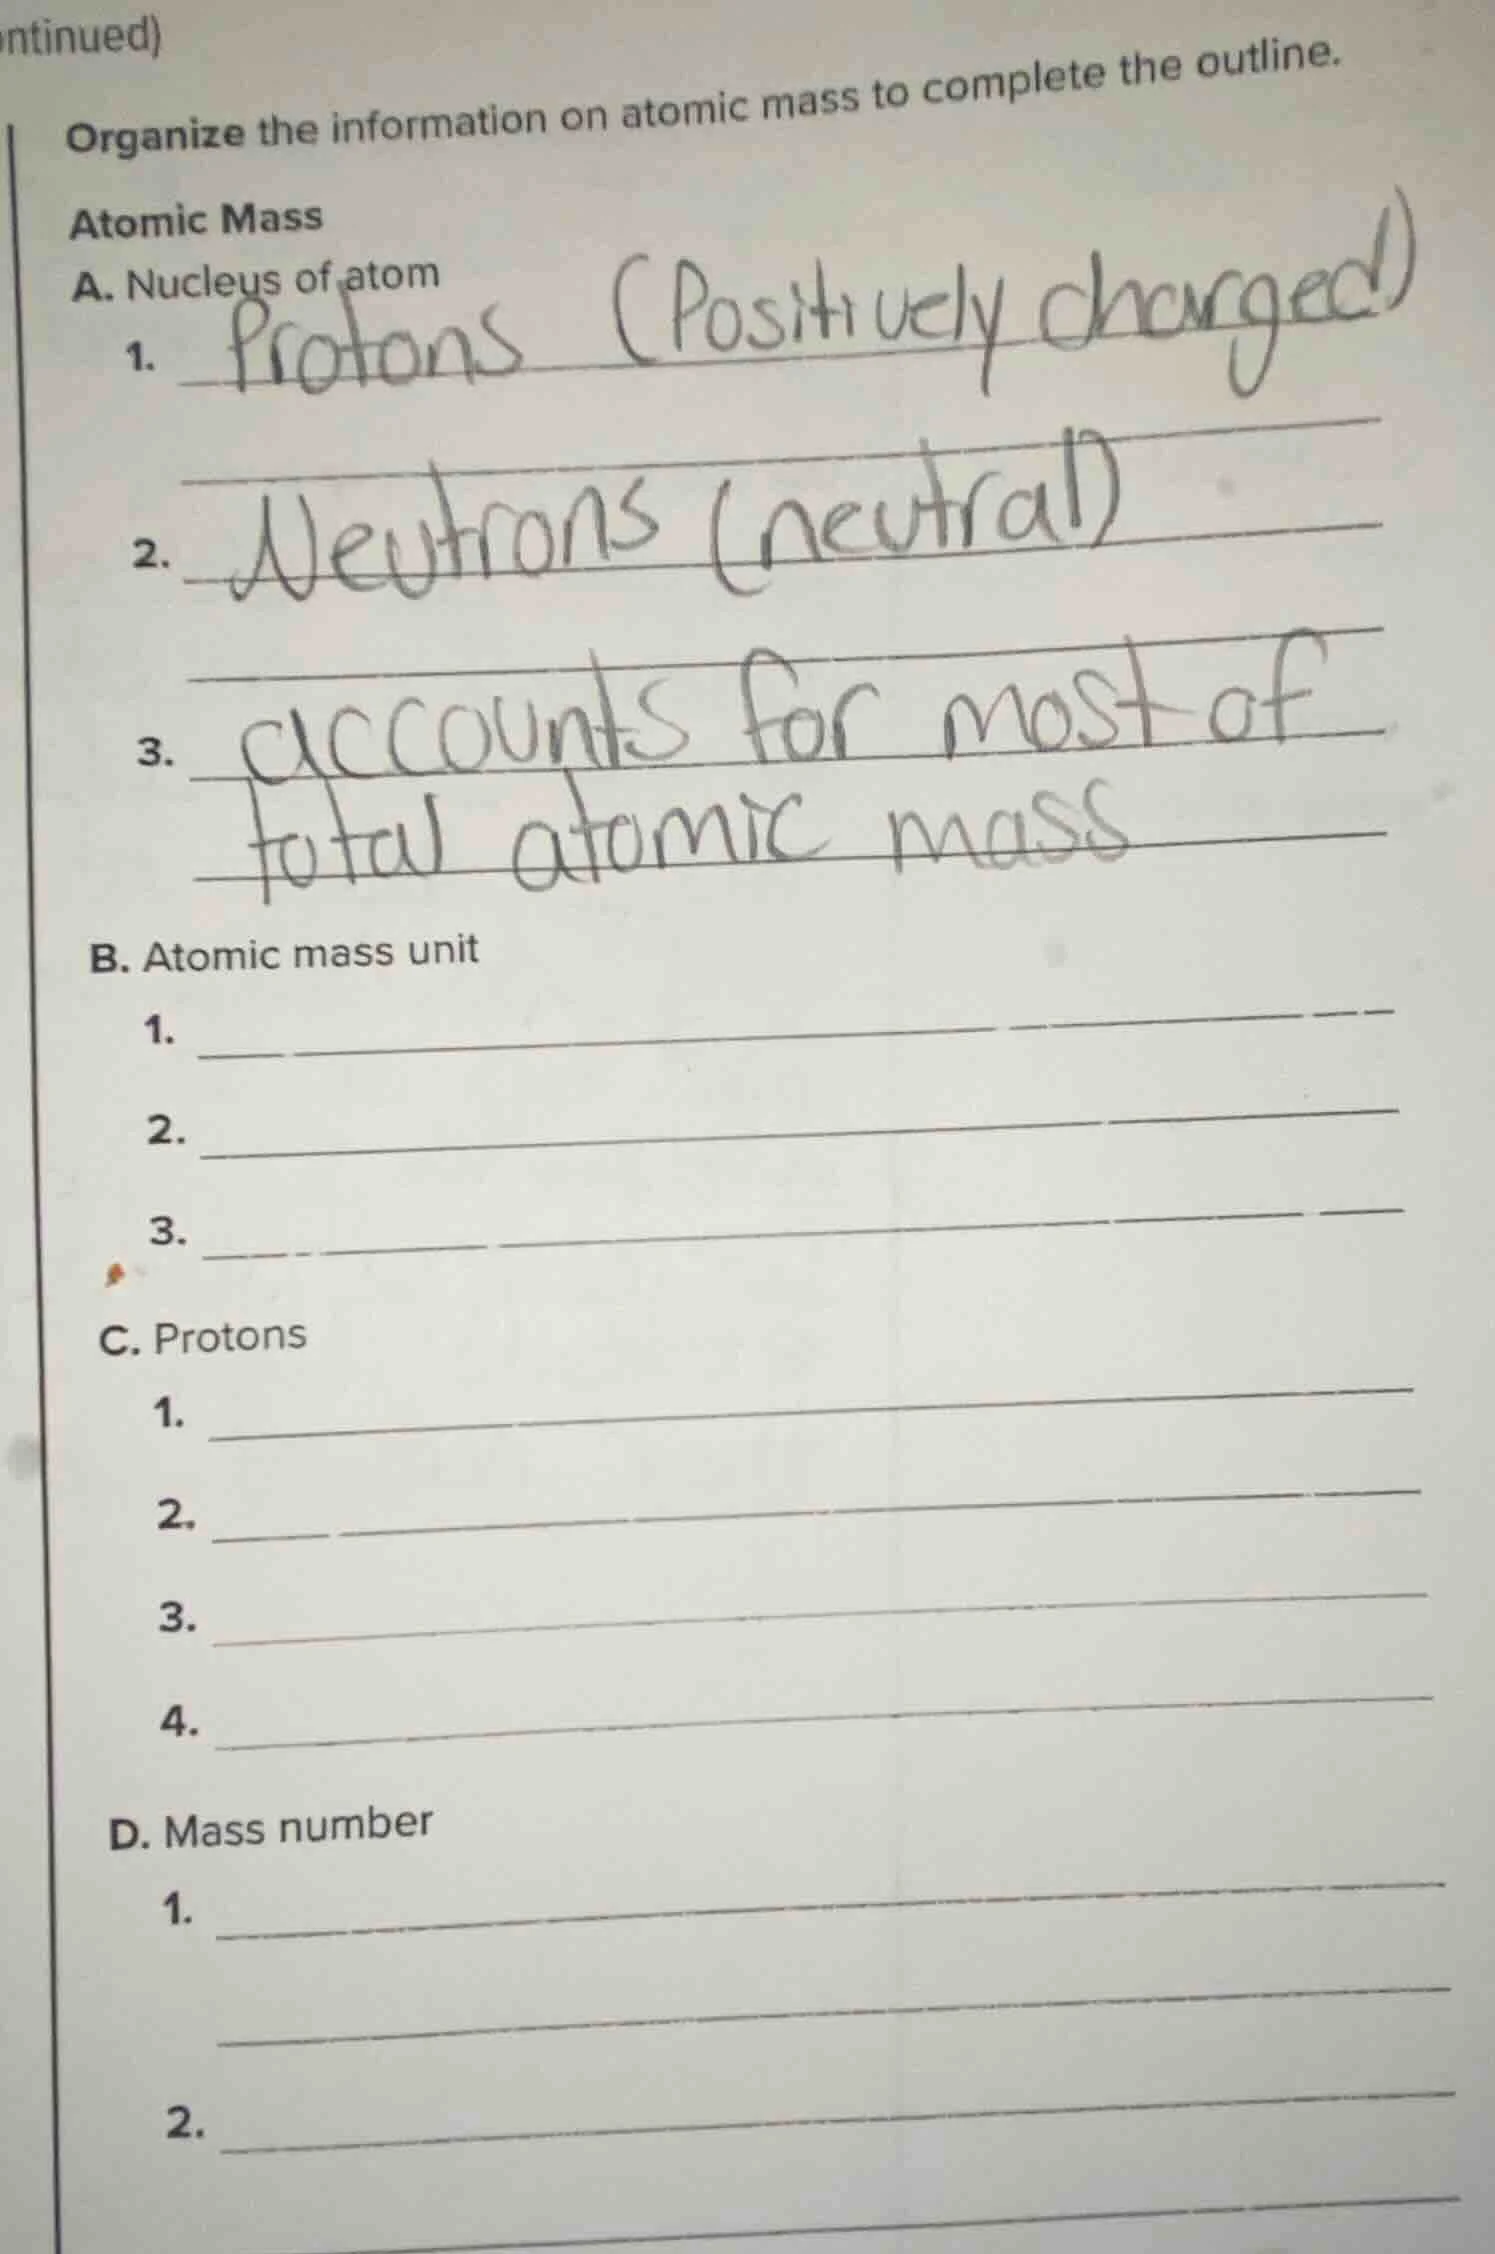 ntinued)
Organize the information on atomic mass to complete the outline.
Atomic Mass
A. Nucleus of atom
1. Protons (Positively charged)
2. Neutrons (neutral)
3. accounts for most of
total atomic mass
B. Atomic mass unit
1.
2.
3.
C. Protons
1.
2.
3.
4.
D. Mass number
1.
2.